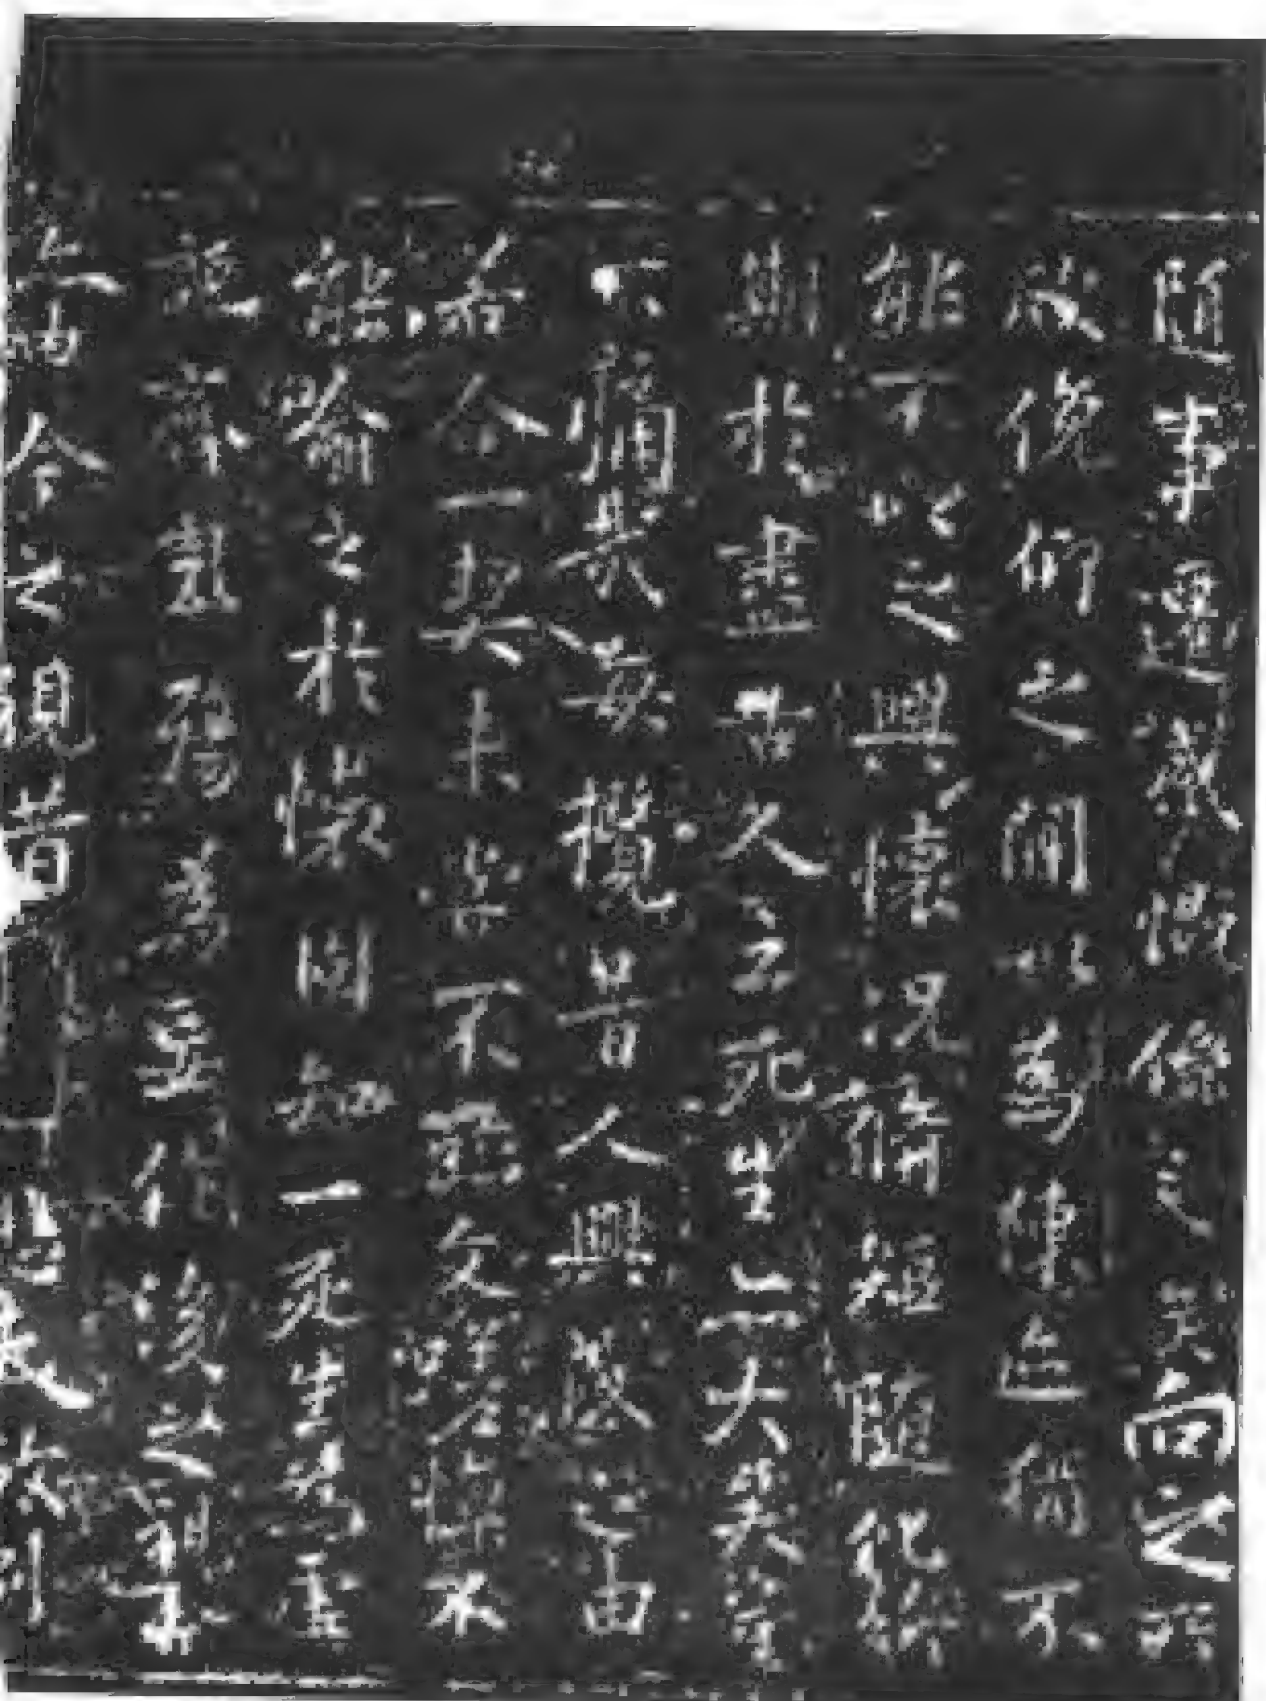 随事遷感慨係之矣向之所
欣俛仰之閒以為陳迹猶不
能不以之興懷況脩短隨化終
期於盡古人云死生亦大矣豈
不痛哉每攬昔人興感之由
若合一契未嘗不臨文嗟悼不
能喻之於懷固知一死生為虛
誕齊彭殤為妄作後之視今
亦由今之視昔 悲夫故列